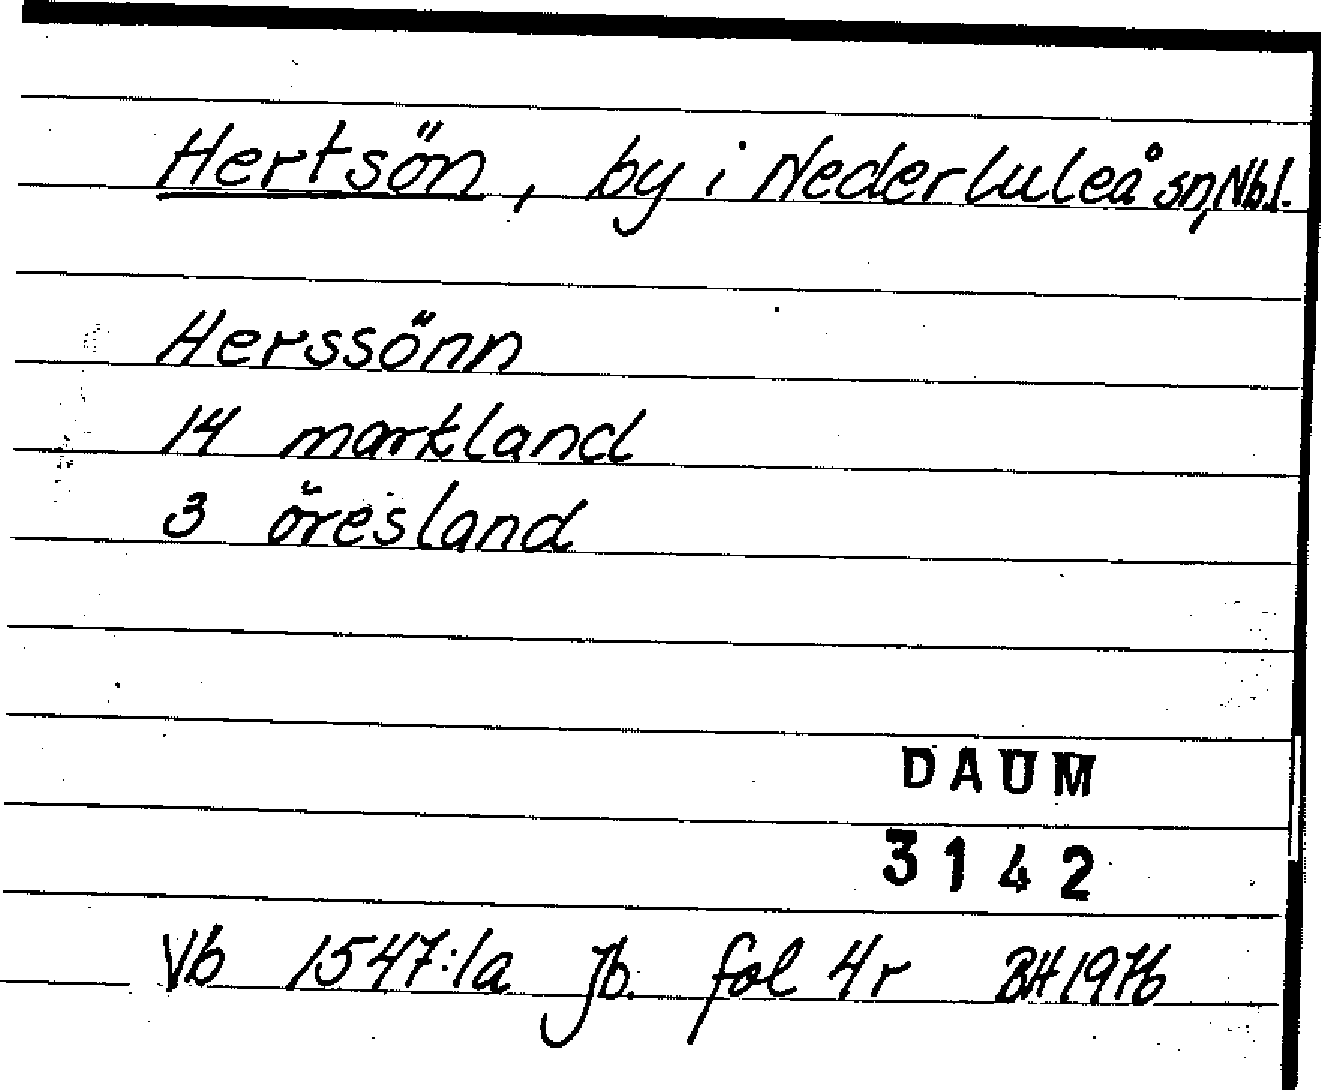 Hertsön, by i Nederluleå sn, Nbl.
Herssönn
14 markland
3 öresland
DAUM
3142
Vb 1547:1a Jb. fol 4r BH 1976